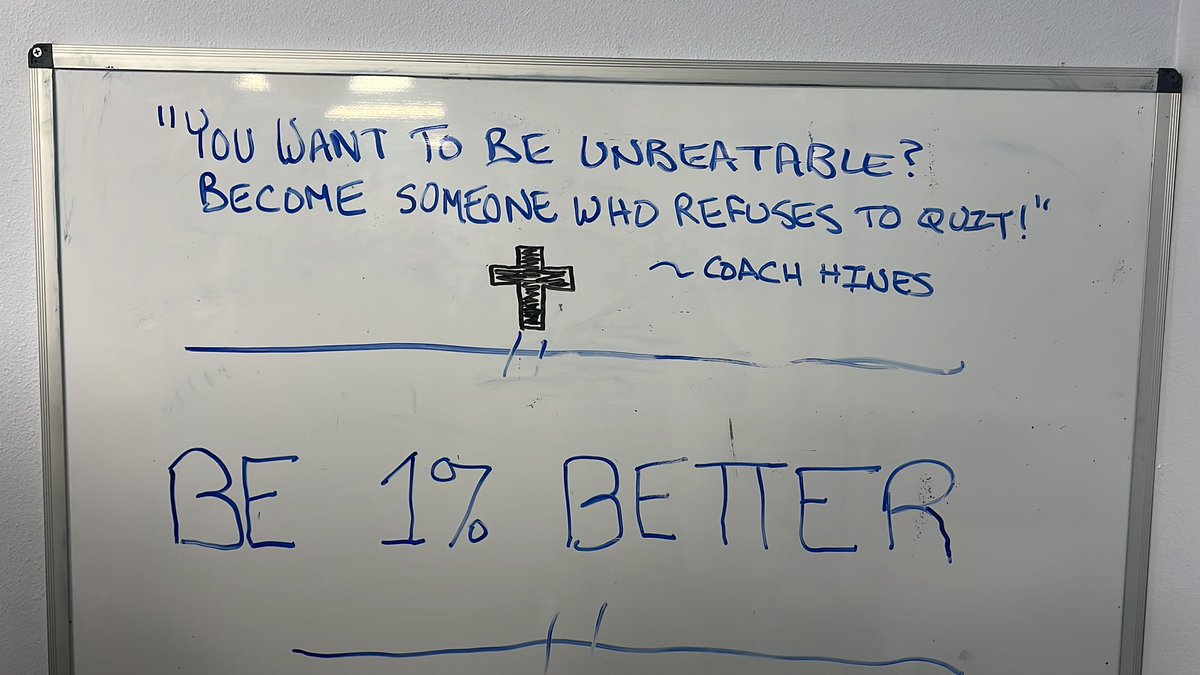 "YOU WANT TO BE UNBEATABLE?
BECOME SOMEONE WHO REFUSES TO QUIT!"
~ COACH HINES
BE 1% BETTER